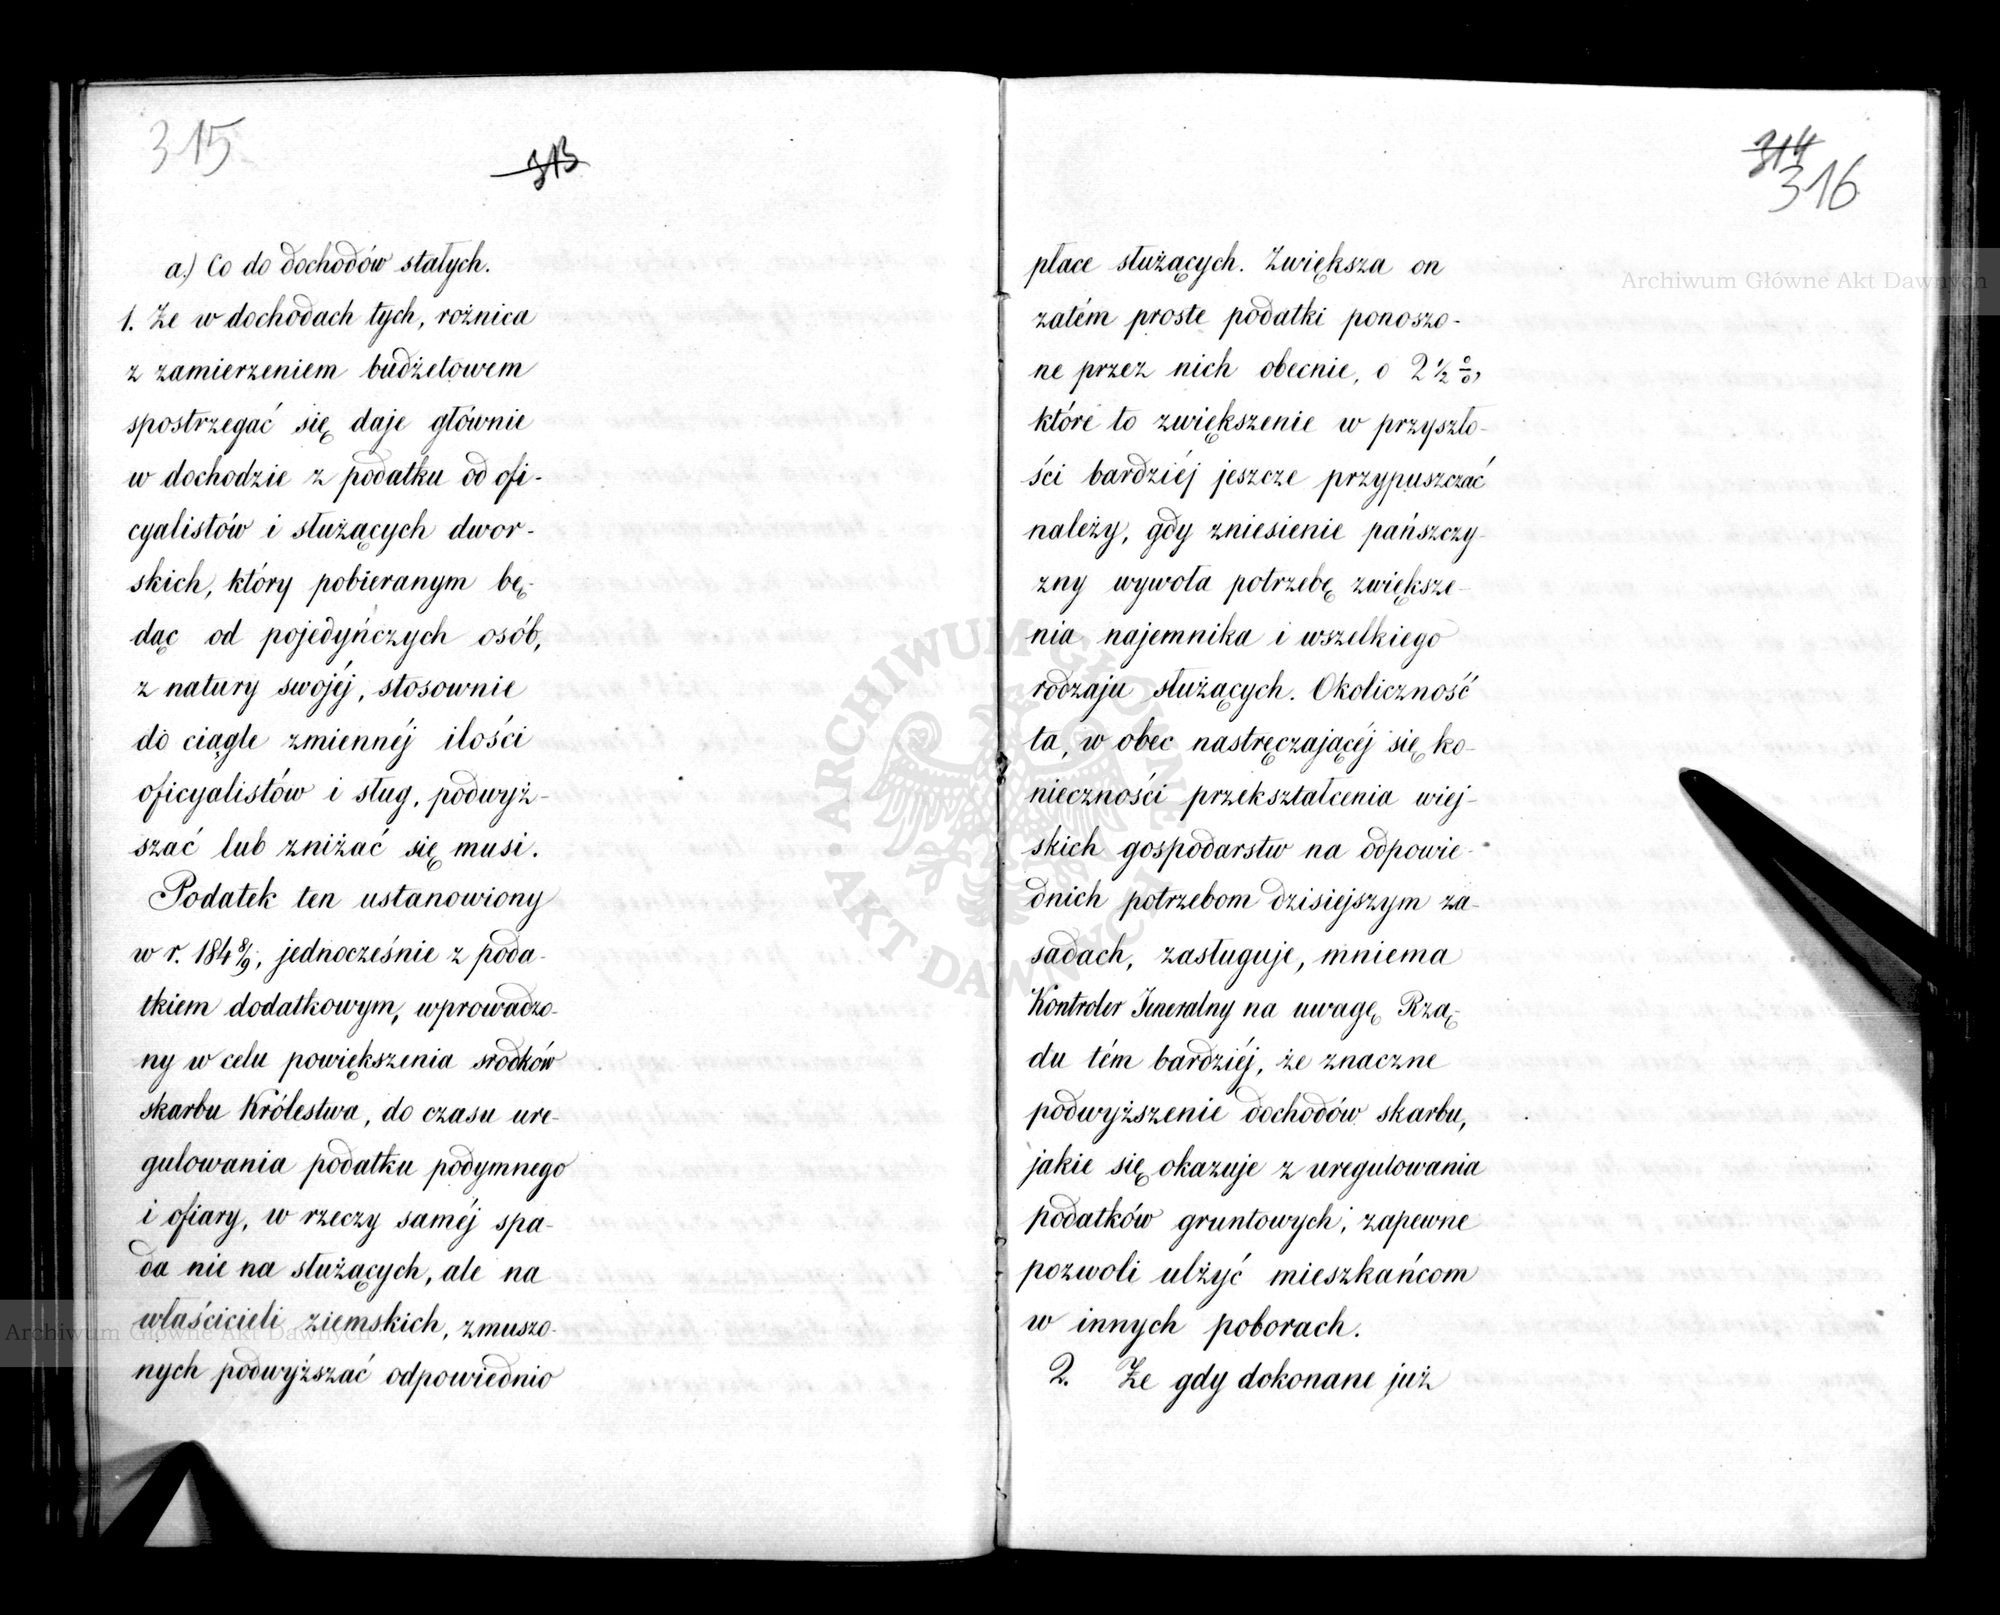 315
313
a.) Co do dochodów stałych.
1. Że w dochodach tych, rożnica
z zamierzeniem budżetowem
spostrzegać się daje głównie
w dochodzie z podatku od ofi-
cyalistów i służących dwor-
skich, który pobieranym bę-
dąc od pojedyńczych osób,
z natury swojéj, stosownie
do ciągle zmiennéj ilości
oficyalistów i sług, podwyż-
szać lub zniżać się musi.
Podatek ten ustanowiony
w r. 184 8/9, jednocześnie z poda-
tkiem dodatkowym, wprowadzo-
ny w celu powiększenia srodków
skarbu Królestwa, do czasu ure-
gulowania podatku podymnego
i ofiary, w rzeczy saméj spa-
da nie na służących, ale na
właścicieli ziemskich, zmuszo-
nych podwyższać odpowiednio
314
316
płace służących. Zwiększa on
zatém proste podatki ponoszo-
ne przez nich obecnie, o 2 1/2 %,
które to zwiększenie w przyszło-
ści bardziéj jeszcze przypuszczać
należy, gdy zniesienie pańszczy-
zny wywoła potrzebę zwiększe-
nia najemnika i wszelkiego
rodzaju służących. Okoliczność
ta, w obec nastręczającéj się ko-
nieczności przekształcenia wiej-
skich gospodarstw na odpowie-
dnich potrzebom dzisiejszym za-
sadach, zasługuje, mniema
Kontroler Jeneralny na uwagę Rzą-
du tém bardziéj, że znaczne
podwyższenie dochodów skarbu,
jakie się okazuje z uregulowania
podatków gruntowych, zapewne
pozwoli ulżyć mieszkańcom
w innych poborach.
2. Że gdy dokonane już
Archiwum Główne Akt Dawnych
Archiwum Główne Akt Dawnych
ARCHIWUM GŁÓWNE
AKT DAWNYCH